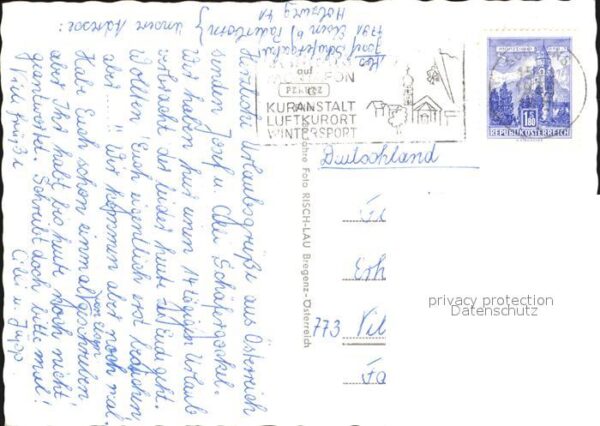 Herzliche Urlaubsgrüße aus Österreich
senden Josef u. Cilli Schäfersgockel.
Wir haben hier einen 14 tägigen Urlaub
verbracht der leider heute zu Ende geht.
Wollten Euch eigentlich erst besuchen,
aber ..... Wir kommen aber noch mal
von Siegen
Habe Euch schon einmal geschrieben
aber Ihr habt bis heute noch nicht
geantwortet. Schreibt doch bitte mal!
Viele Grüße Cilli u. Jupp
unsere Adresse:
Josef Schäfersgockel
4791 Elsen b/ Paderborn
auf
KURANSTALT
LUFTKURORT
WINTERSPORT
1.80
REPUBLIK ÖSTERREICH
Deutschland
Foto RISCH-LAU Bregenz-Österreich
Erh
773 Vil
privacy protection
Datenschutz